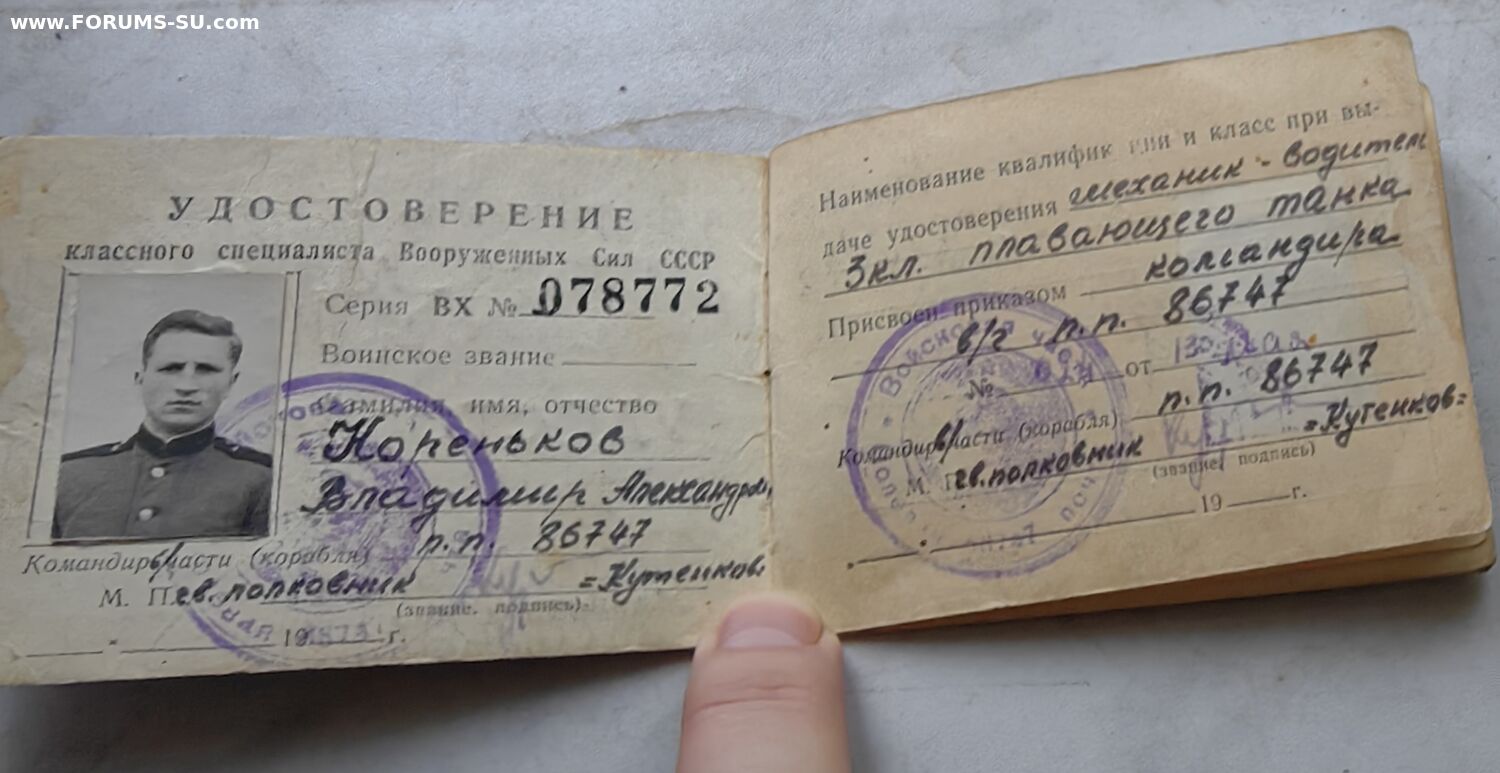 www.FORUMS-SU.com
УДОСТОВЕРЕНИЕ
классного специалиста Вооруженных Сил СССР
Серия ВХ № 078772
Воинское звание
Фамилия, имя, отчество
Кореньков
Владимир Александров
п.п. 86747
Командир в/части (корабля)
М. П. гв. полковник =Кутенков
(звание, подпись)
19 г.
Наименование квалификации и класс при вы-
даче удостоверения механик - водитель
3 кл. плавающего танка
Присвоен приказом командира
в/ч п.п. 86747
№ от
Командир в/части (корабля) п.п. 86747
М. П. гв. полковник =Кутенков=
(звание, подпись)
19 г.